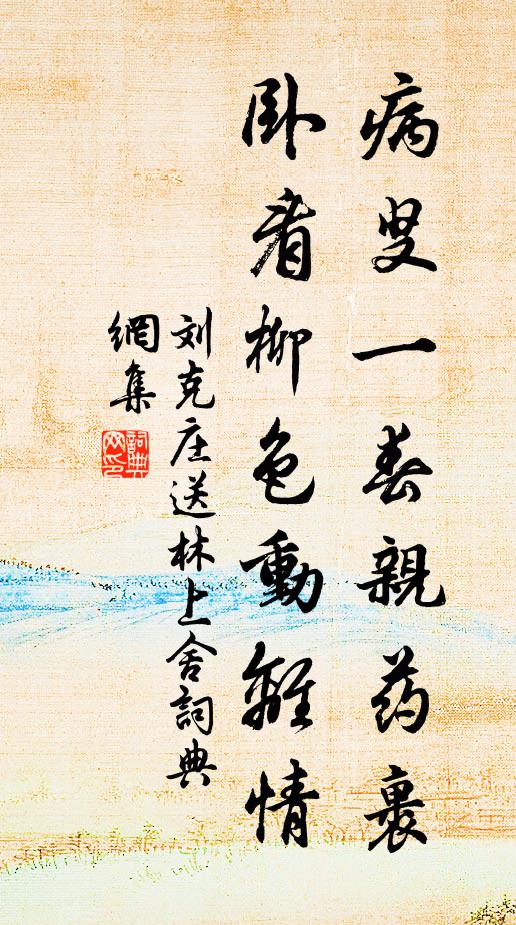 病叟一春親药裹
卧看柳色動離情
刘克庄送林上舍詞典
網集
詞典
网印